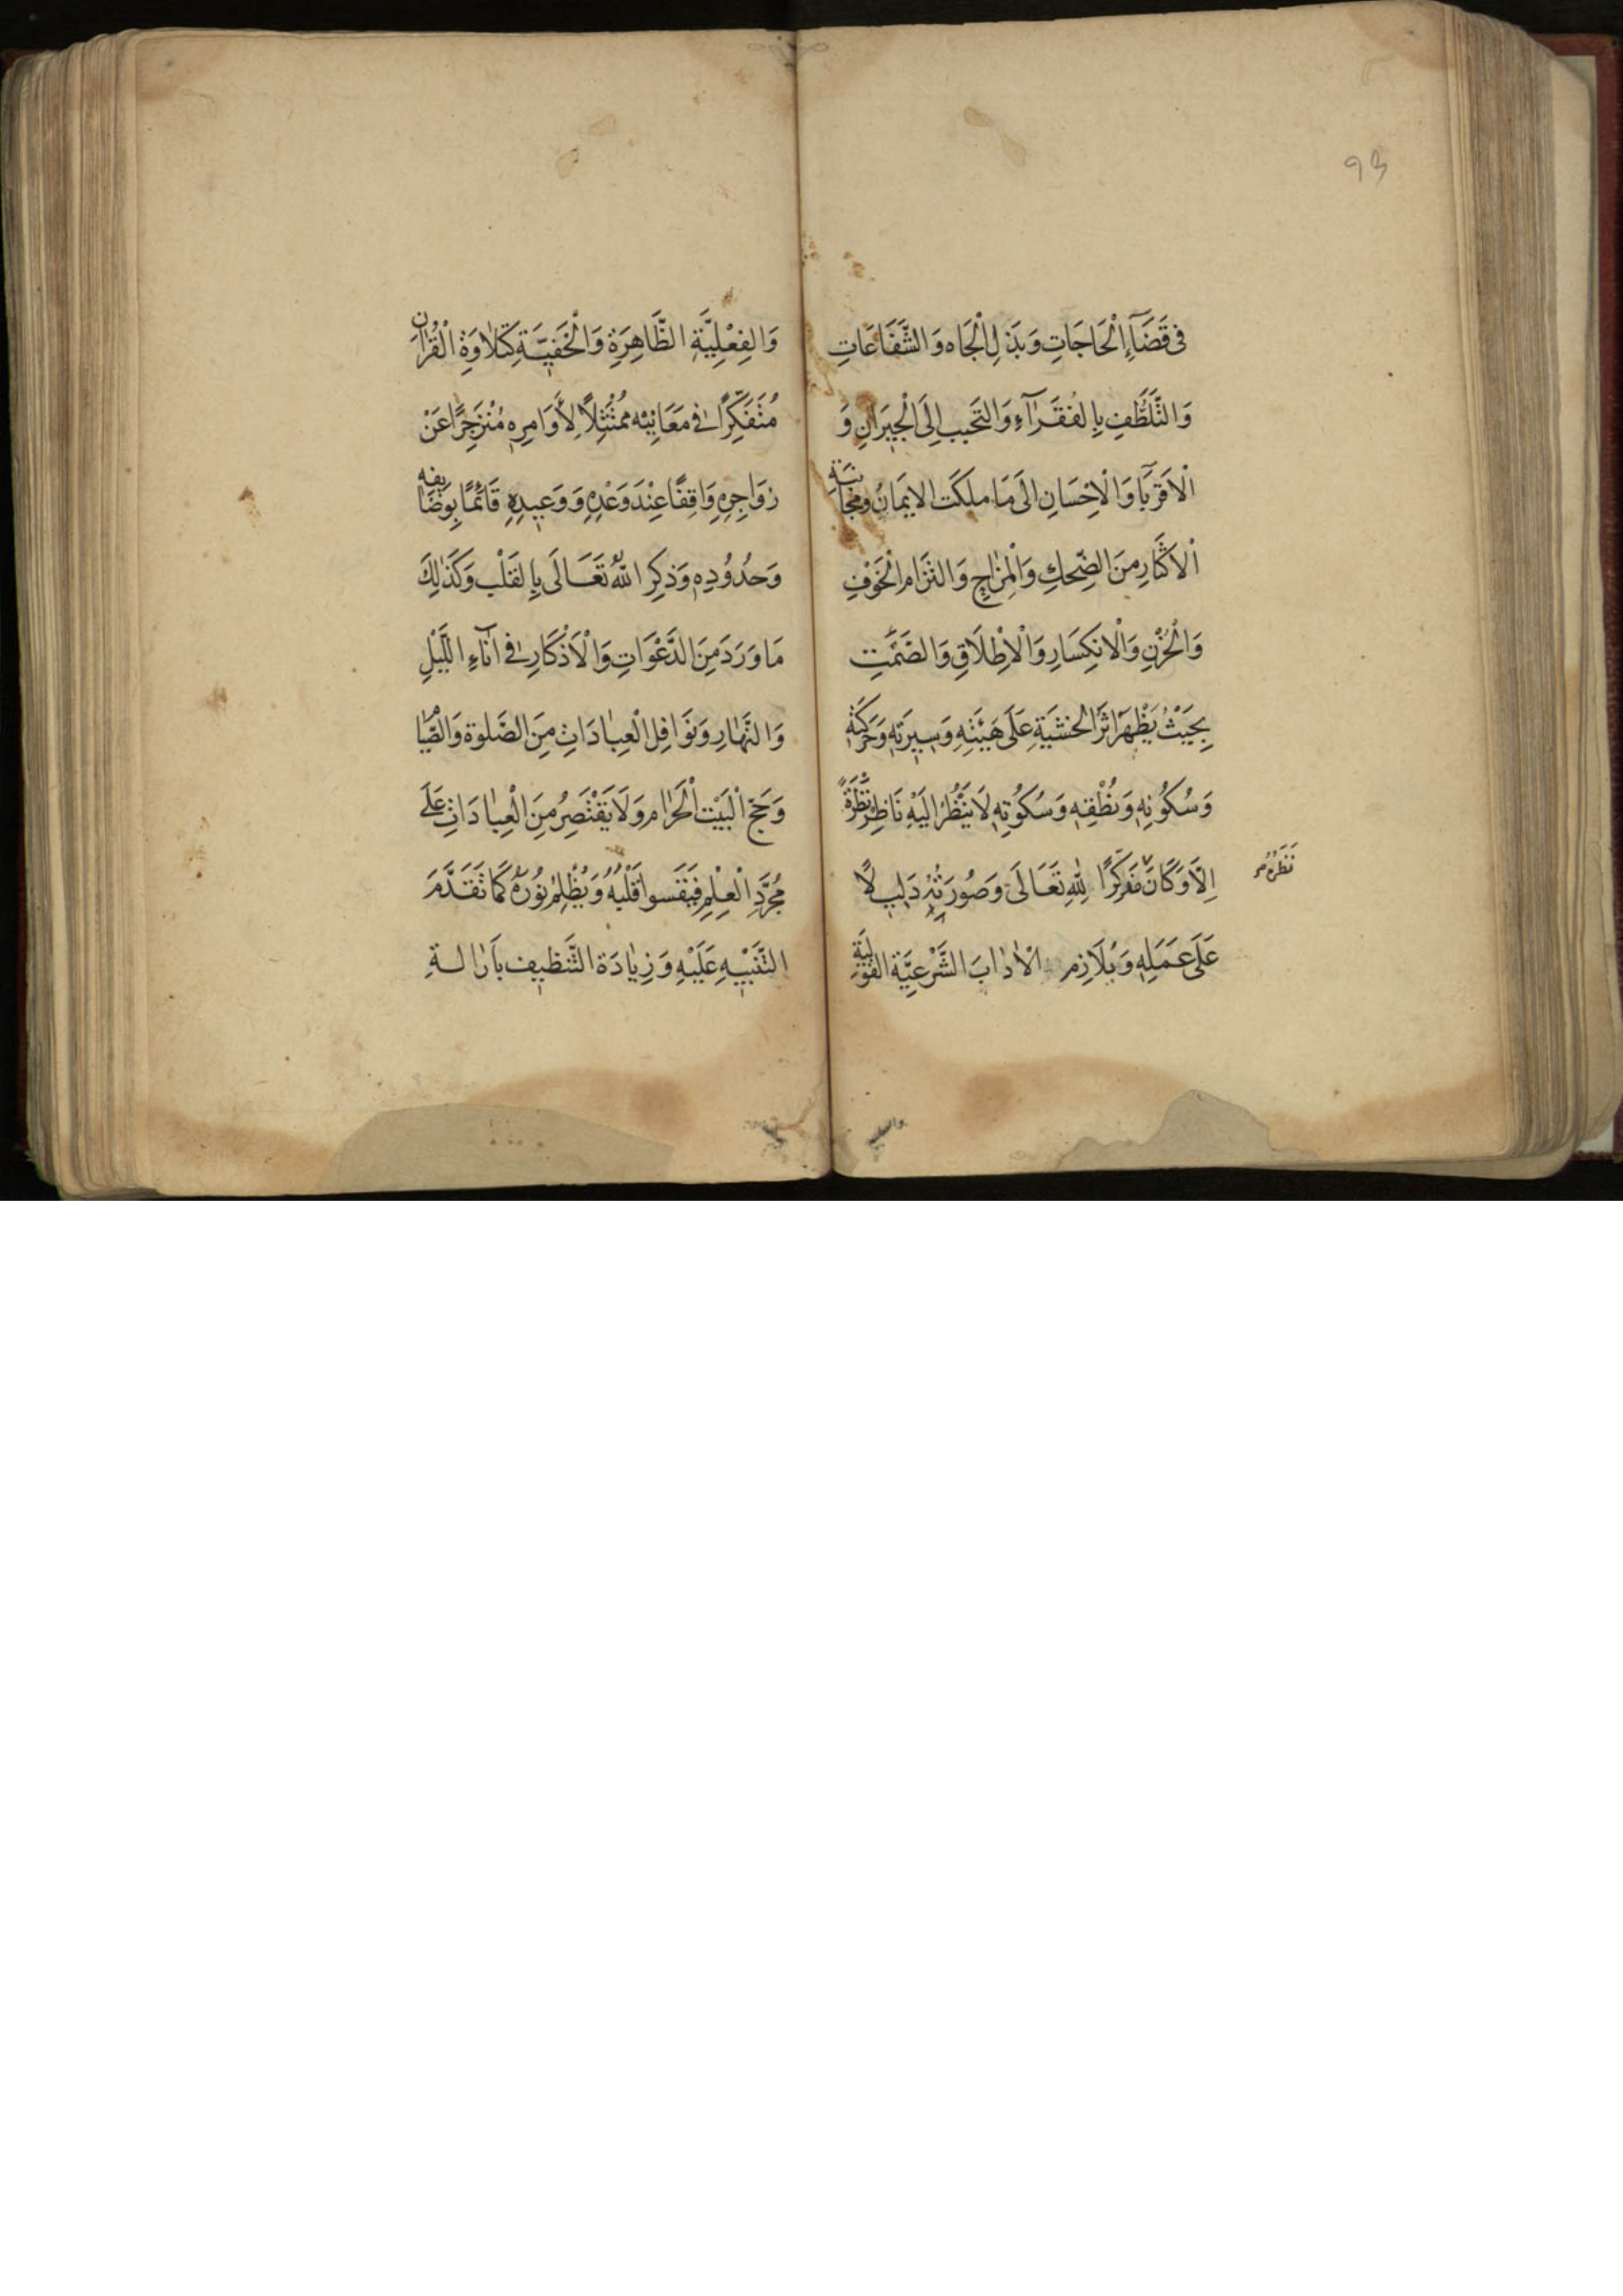 93
فى قَضَآءِ الْحَاجَاتِ وَبَذْلِ الْجَاه وَالشَّفَاعَاتِ
وَالتَّلَطُّفِ بِالفُقَرَآءِ وَالتَحَبب اِلَى الْجيرَانِ وَ
الْاَقرَبَآ وَالْاِحْسَانِ الَى مَا ملكَت الايمَانُ ومجانبَة
الْاكثَارِ مِنَ الضِّحكِ وَالْمِزَاحِ وَالتزَام الْخَوْفِ
وَالْحُزْنِ وَالْانكِسَارِ وَالْاِطْلَاقِ وَالصَمْتِ
بِحَيْثُ يَظْهَرُ اَثَرُ الخشيَةِ عَلَى هَيْئَتِهِ وَسيرَتِهِ وَحَركَتِهِ
وَسُكُونِهِ وَنُطْقِهِ وَسُكُوتِهِ لَا يَنْظُرُ اِلَيْهِ نَاظِر نَظْرَةً
نَظَرُهُ م
اِلَّا وَكَانَ مفَكِّرًا لِلّهِ تَعَالَى وَصُورَتُهُ دَليلًا
عَلَى عَمَلِهِ وَيُلَازِم الْادَابَ الشَّرْعِيَّة القوليَة
وَالفِعْلِيَّةِ الظَّاهِرَةِ وَالْخَفيَّةِ كَتِلَاوَةِ الْقُرْانِ
مُتَفَكِّرًا فى مَعَانِيْه مُمْتَثِلًا لِاَوَامِرِهِ مُنْزَجِرًا عَنْ
زوَاجِرِهِ وَاقِفًا عِنْدَ وَعْدِهِ وَوَعيدِهِ قَائمًا بِوَضَايفِه
وَحدُودِهِ وَذِكِر اللهُ تَعَالَى بِالقَلْب وَكَذَالِكَ
مَا وَرَدَ مِنَ الدَّعْوَاتِ وَالْاَذْكَارِ فى اٰنَآءِ اللَّيْلِ
وَالنَّهَارِ وَنَوَافِلِ الْعِبَادَاتِ مِنَ الصَّلوة وَالصِّيَا
وَحَجّ الْبَيْت الْحَرَام وَلَا يَقْتَصِرُ مِنَ الْعِبَادَاتِ عَلَى
مُجَرَّدِ الْعِلْمِ فَيَقسوا قَلْبُهُ وَيُظْلِمُ نُورُهُ كَمَا تَقَدَّمَ
التَّنْبِيْهِ عَلَيْهِ وَزِيَادَة التَّنظيف بازَالةِ